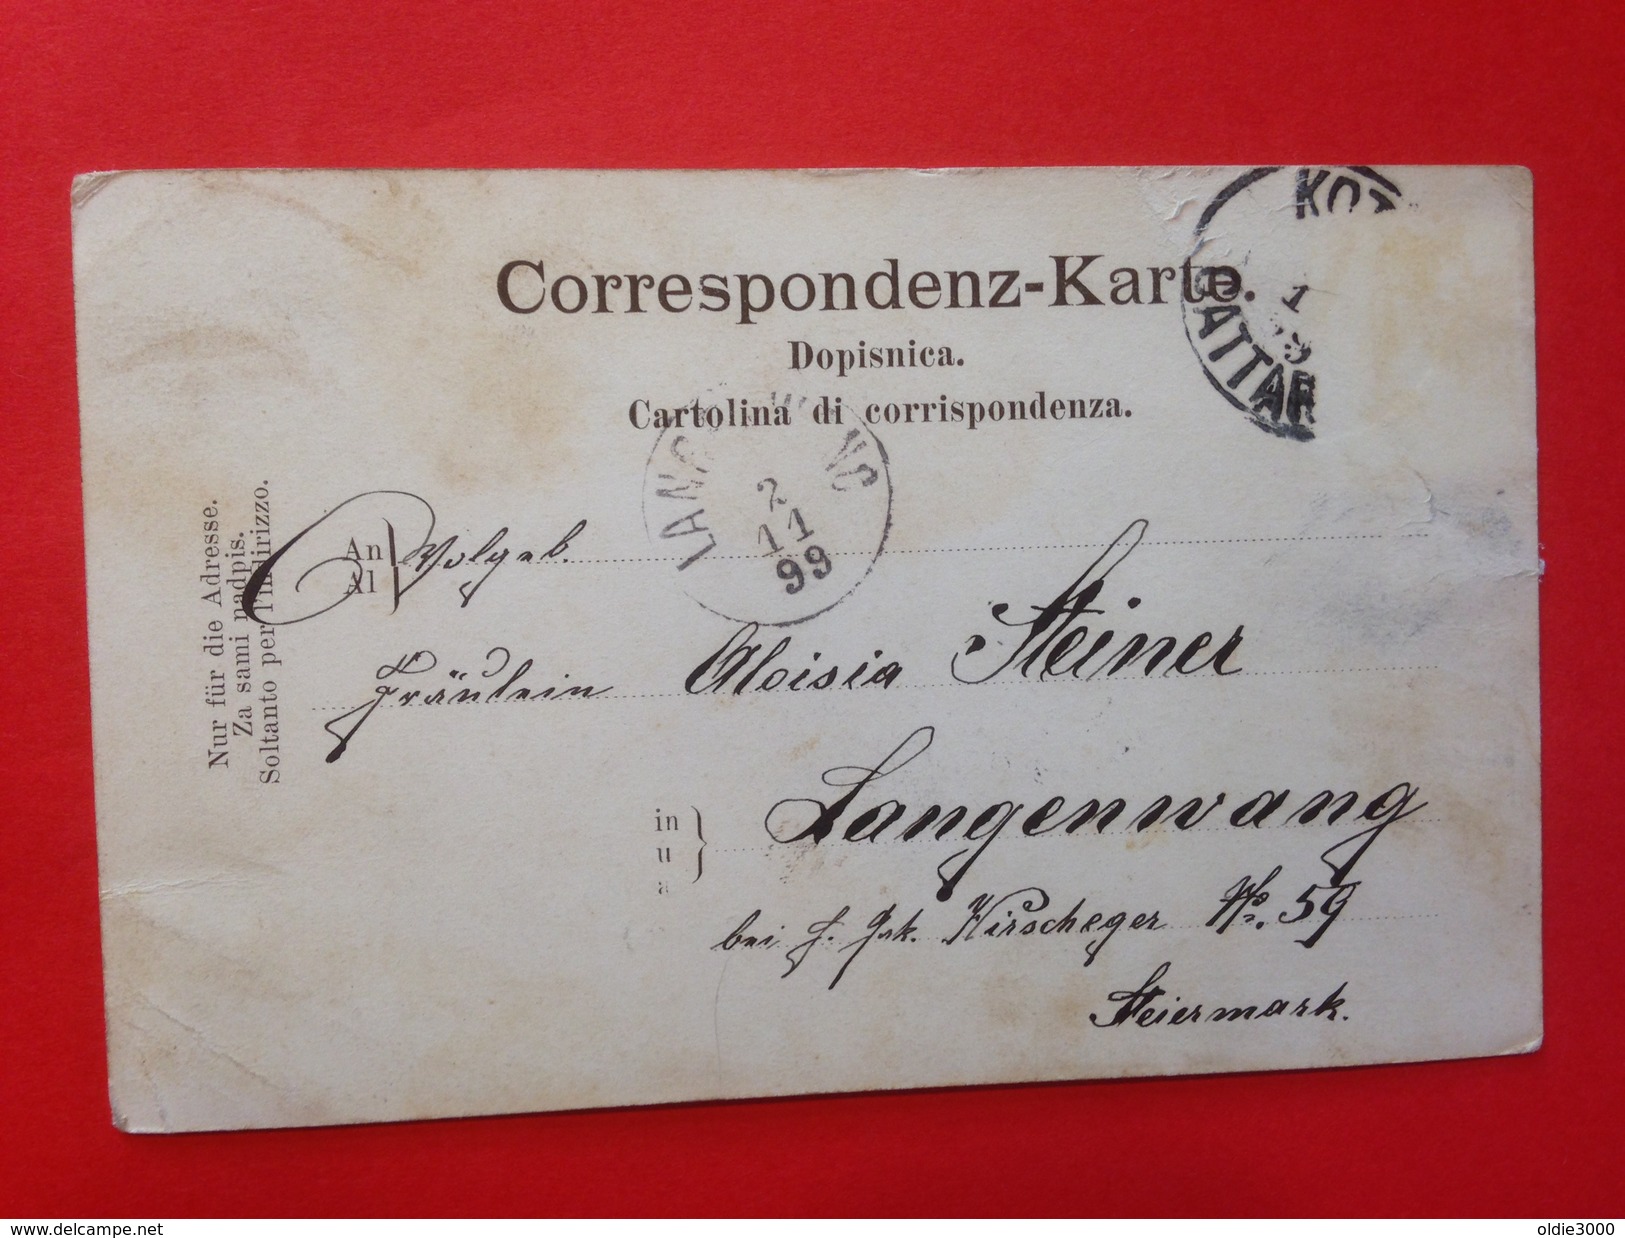 Correspondenz-Karte.
Dopisnica.
Cartolina di corrispondenza.
KOT
CATTAR
1
99
LANG WANG
2
11
99
Nur für die Adresse.
Za sami nadpis.
Soltanto per l'indirizzo.
An
Al
Wolgeb.
Fräulein Aloisia Steiner
in
u
a
Langenwang
bei H. Kirscheger No. 59
Steiermark.
www.delcampe.net
oldie3000